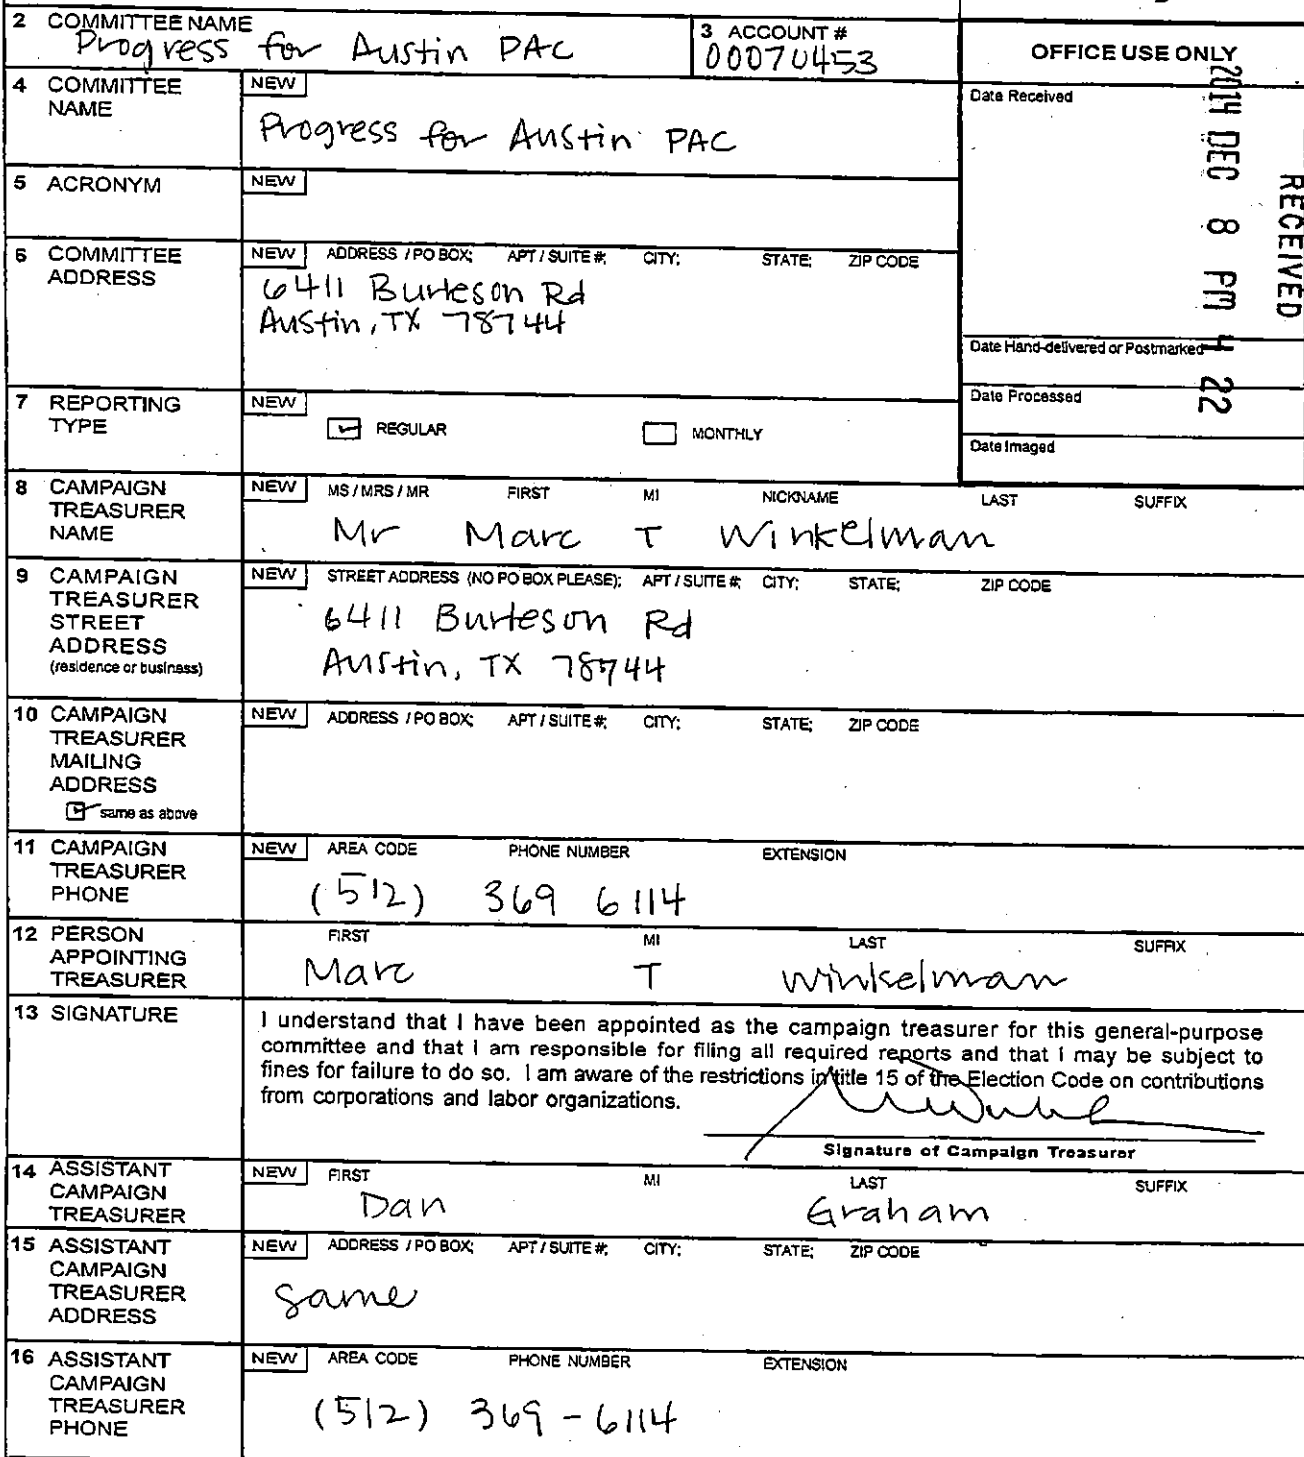 2 COMMITTEE NAME
Progress for Austin PAC
3 ACCOUNT #
00070453
OFFICE USE ONLY
4 COMMITTEE NAME
NEW
Progress for Austin PAC
Date Received
2014 DEC 8 PM 4 22
RECEIVED
5 ACRONYM
NEW
6 COMMITTEE ADDRESS
NEW ADDRESS / PO BOX; APT / SUITE #; CITY; STATE; ZIP CODE
6411 Burleson Rd
Austin, TX 78744
Date Hand-delivered or Postmarked
7 REPORTING TYPE
NEW
REGULAR MONTHLY
Date Processed
Date Imaged
8 CAMPAIGN TREASURER NAME
NEW MS / MRS / MR FIRST MI NICKNAME LAST SUFFIX
Mr Marc T Winkelman
9 CAMPAIGN TREASURER STREET ADDRESS
(residence or business)
NEW STREET ADDRESS (NO PO BOX PLEASE); APT / SUITE #; CITY; STATE; ZIP CODE
6411 Burleson Rd
Austin, TX 78744
10 CAMPAIGN TREASURER MAILING ADDRESS
same as above
NEW ADDRESS / PO BOX; APT / SUITE #; CITY; STATE; ZIP CODE
11 CAMPAIGN TREASURER PHONE
NEW AREA CODE PHONE NUMBER EXTENSION
(512) 369 6114
12 PERSON APPOINTING TREASURER
FIRST MI LAST SUFFIX
Marc T Winkelman
13 SIGNATURE
I understand that I have been appointed as the campaign treasurer for this general-purpose
committee and that I am responsible for filing all required reports and that I may be subject to
fines for failure to do so. I am aware of the restrictions in title 15 of the Election Code on contributions
from corporations and labor organizations.
Signature of Campaign Treasurer
14 ASSISTANT CAMPAIGN TREASURER
NEW FIRST MI LAST SUFFIX
Dan Graham
15 ASSISTANT CAMPAIGN TREASURER ADDRESS
NEW ADDRESS / PO BOX; APT / SUITE #; CITY; STATE; ZIP CODE
same
16 ASSISTANT CAMPAIGN TREASURER PHONE
NEW AREA CODE PHONE NUMBER EXTENSION
(512) 369-6114